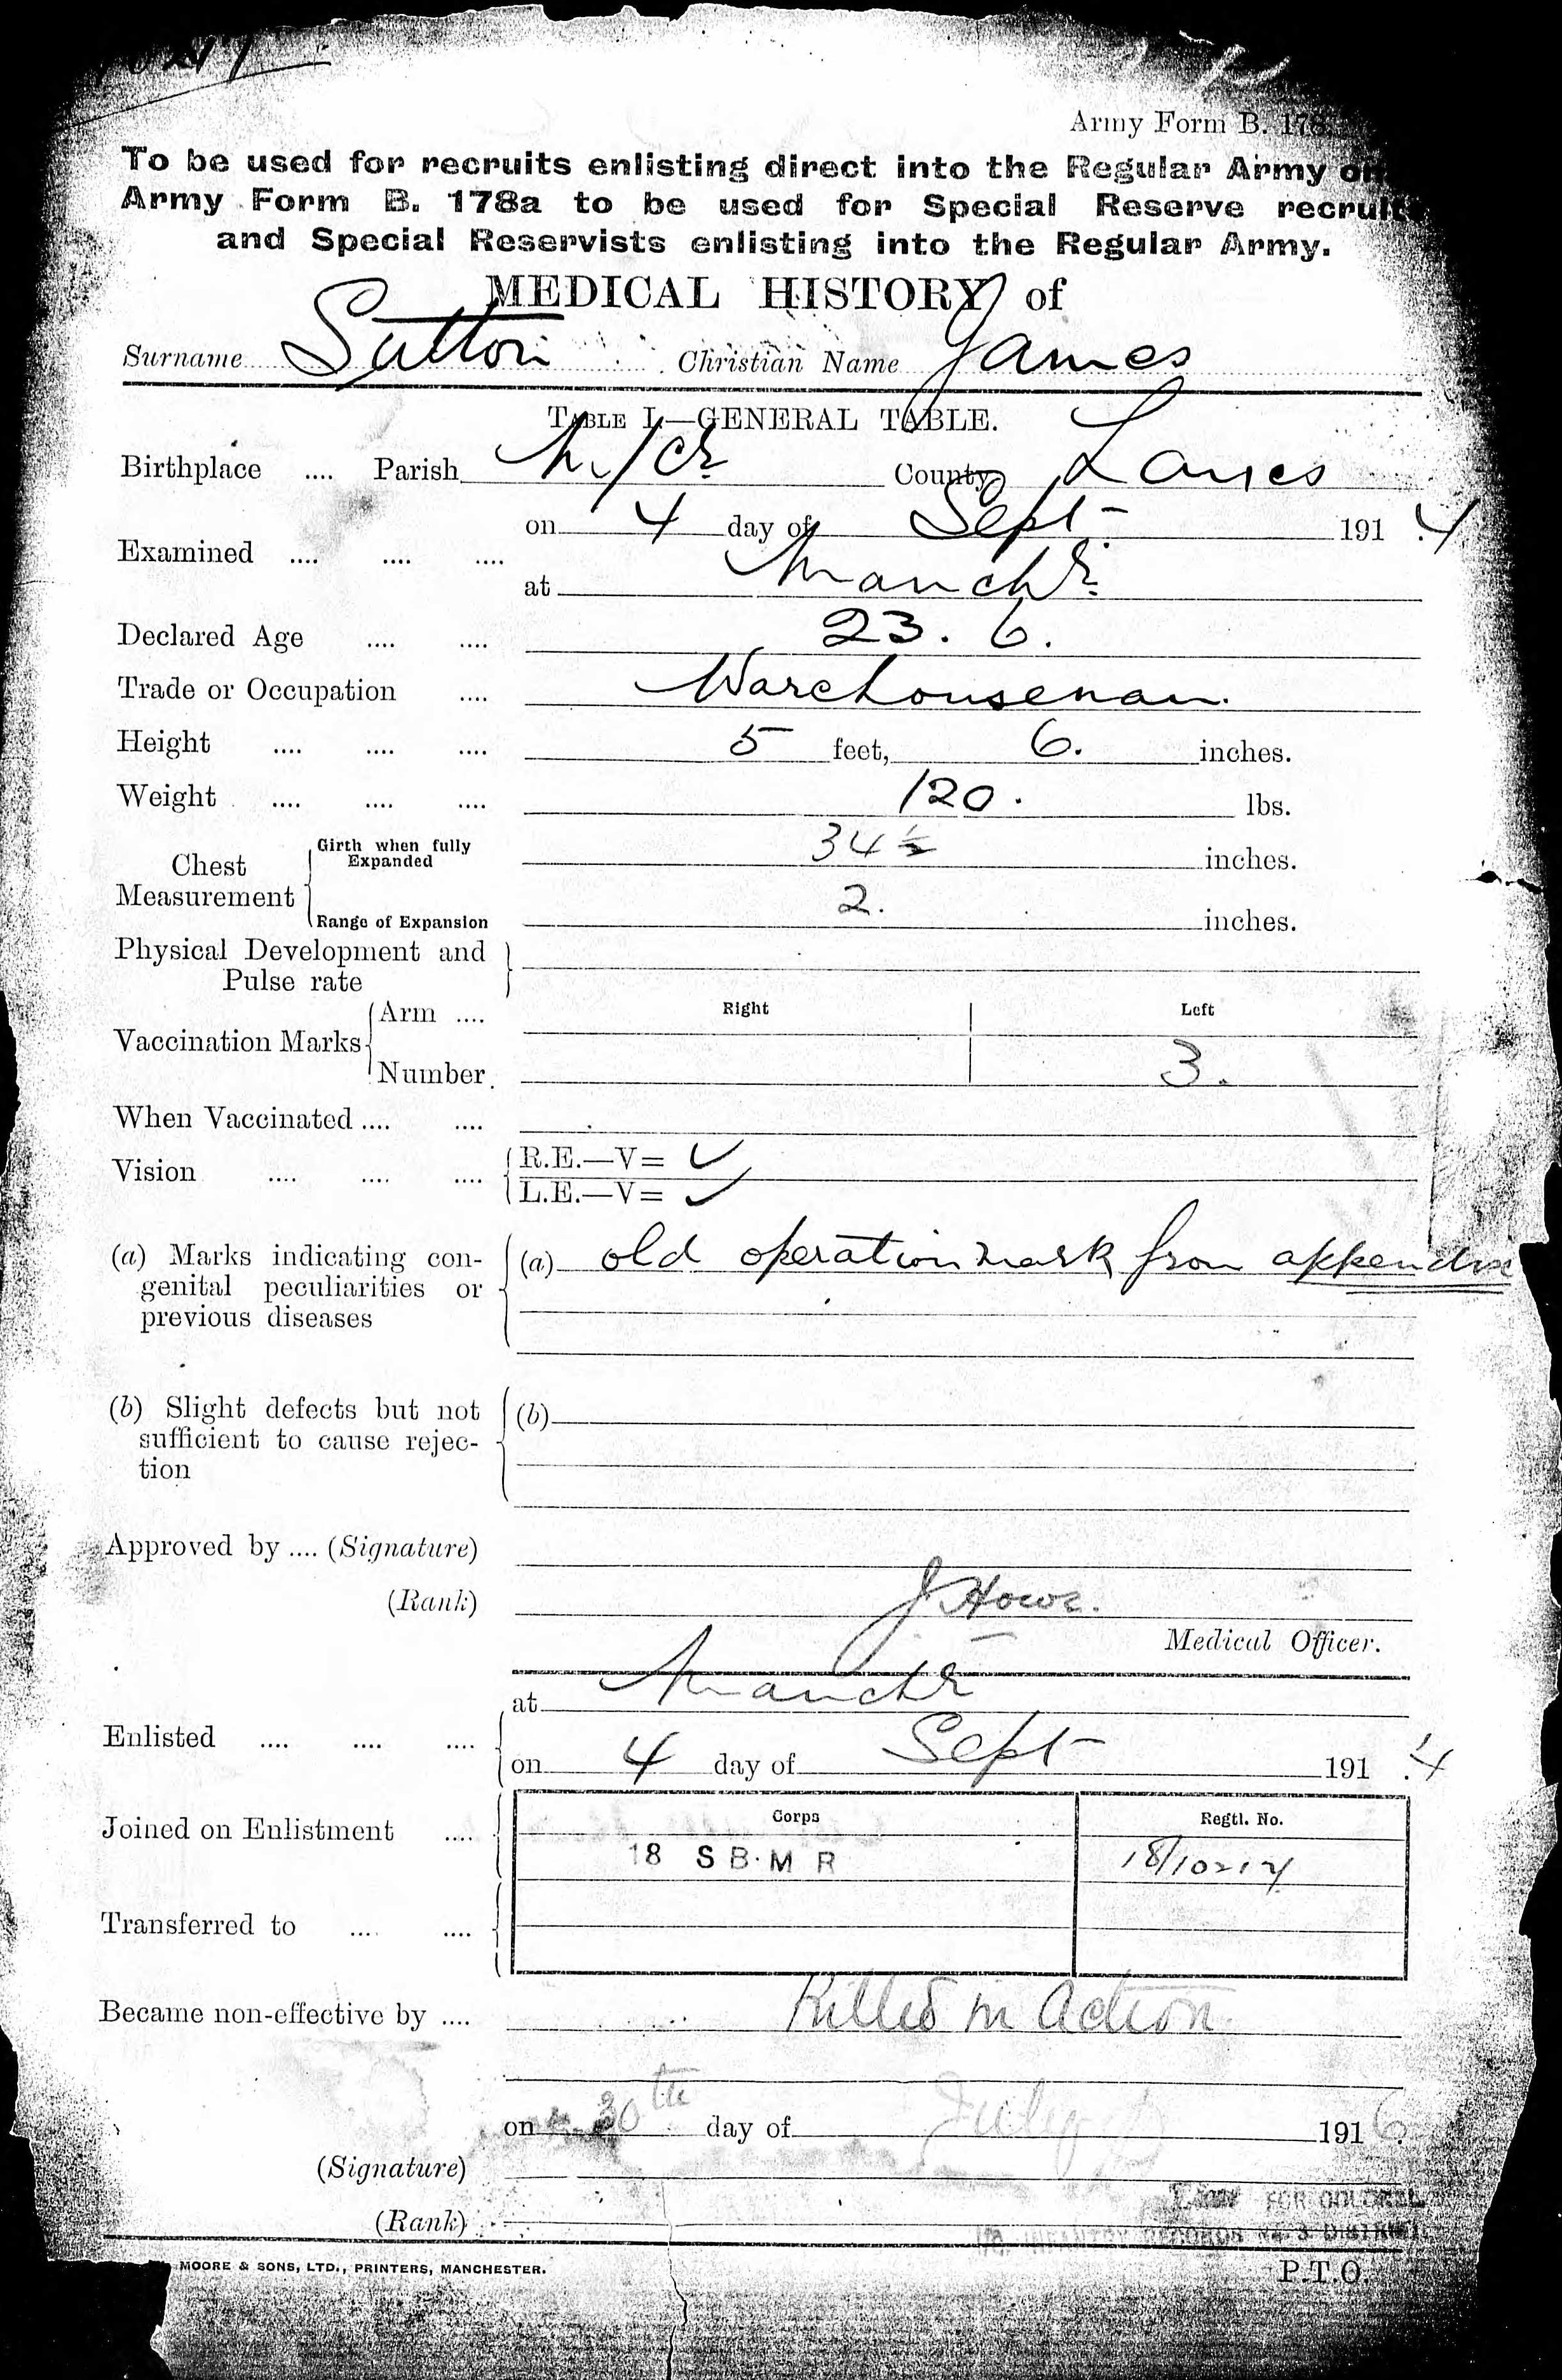 Army Form B. 178.
To be used for recruits enlisting direct into the Regular Army on
Army Form B. 178a to be used for Special Reserve recruits
and Special Reservists enlisting into the Regular Army.
MEDICAL HISTORY of
Surname Sutton Christian Name James
TABLE I.—GENERAL TABLE.
Birthplace .... Parish M/cr County Lancs
Examined .... .... .... on 4 day of Sept 1914
at Manchr.
Declared Age .... .... 23. 6.
Trade or Occupation .... Warehouseman.
Height .... .... .... 5 feet, 6. inches.
Weight .... .... .... 120. lbs.
Chest Measurement Girth when fully Expanded 34½ inches.
Range of Expansion 2. inches.
Physical Development and
Pulse rate
Vaccination Marks Arm .... Right Left
Number 3.
When Vaccinated .... ....
Vision .... .... .... R.E.—V= ✓
L.E.—V= ✓
(a) Marks indicating con- (a) old operation mark from appendix
genital peculiarities or
previous diseases
(b) Slight defects but not (b)
sufficient to cause rejec-
tion
Approved by .... (Signature)
(Rank) J Howe.
Medical Officer.
at Manchr
Enlisted .... .... ....
on 4 day of Sept 1914
Corps Regtl. No.
Joined on Enlistment .... 18 S B. M R 18/10217
Transferred to .... ....
Became non-effective by .... Killed in Action
on 30th day of July 1916.
(Signature)
(Rank) FOR COLONEL
INFANTRY RECORDS No. 3 DISTRICT
MOORE & SONS, LTD., PRINTERS, MANCHESTER.
P.T.O.